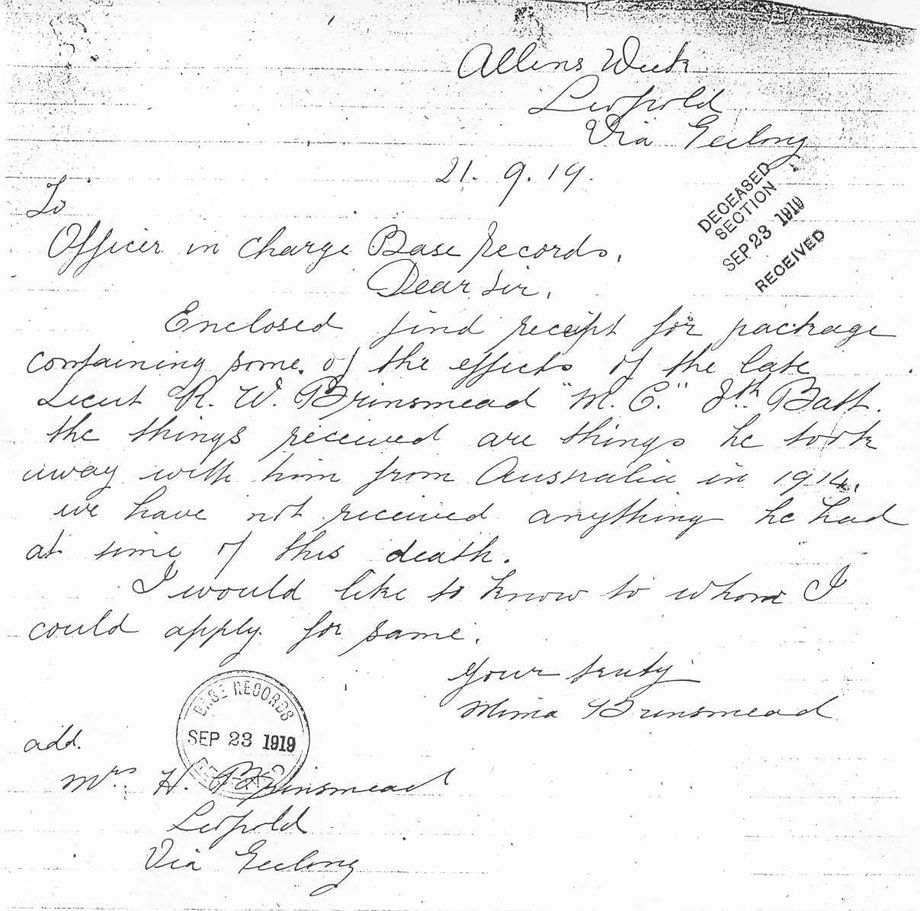 Allens
Leopold
Via Geelong
21. 9. 19.
To
Officer in Charge Base Records.
Dear Sir,
Enclosed find receipt for package
containing some of the effects of the late
Lieut R. W. Brinsmead "M. C." 8th Batt.
the things received are things he took
away with him from Australia in 1914.
we have not received anything he had
at time of this death.
I would like to know to whom I
could apply for same.
Your truly
Mima Brinsmead
add.
Mrs H. Brinsmead
Leopold
Via Geelong
DECEASED
SECTION
SEP 23 1919
RECEIVED
BASE RECORDS
SEP 23 1919
RECEIVED